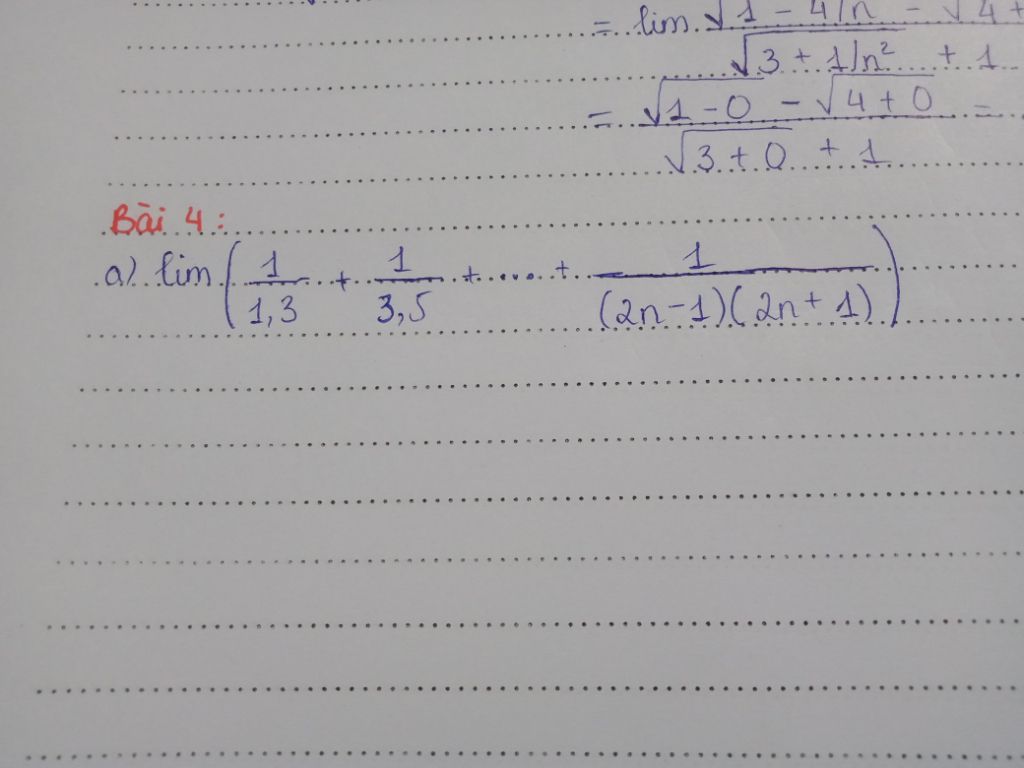 = lim √1 - 4/n - √4 +
√3 + 1/n² + 1
= √1-0 - √4+0 =
√3+0 + 1
Bài 4:
a) lim ( 1/1,3 + 1/3,5 + .... + 1/(2n-1)(2n+1) )